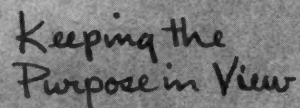 Keeping the
Purpose in View